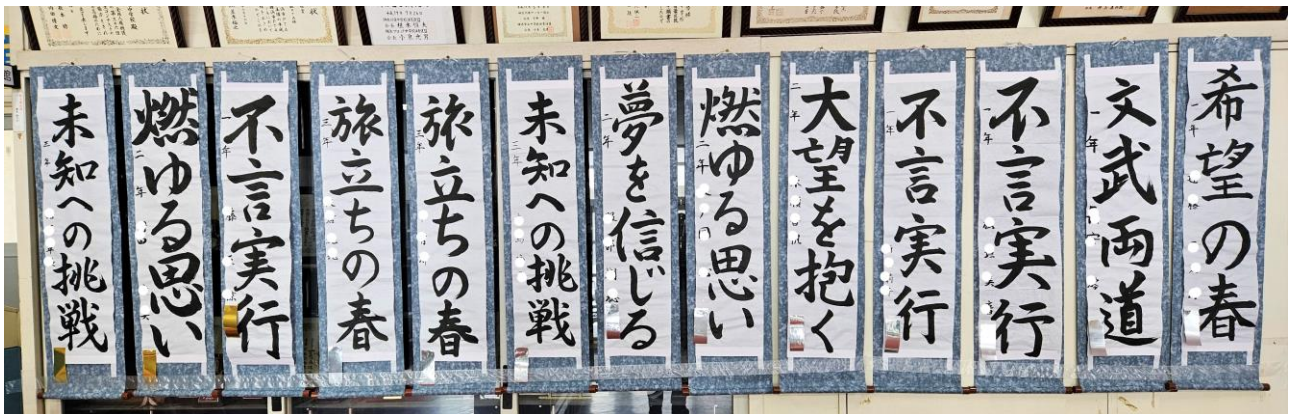 希望の春
一年
文武両道
一年
不言実行
一年
不言実行
一年
大望を抱く
二年
燃ゆる思い
二年
夢を信じる
二年
未知への挑戦
三年
旅立ちの春
三年
旅立ちの春
三年
不言実行
一年
燃ゆる思い
二年
未知への挑戦
三年